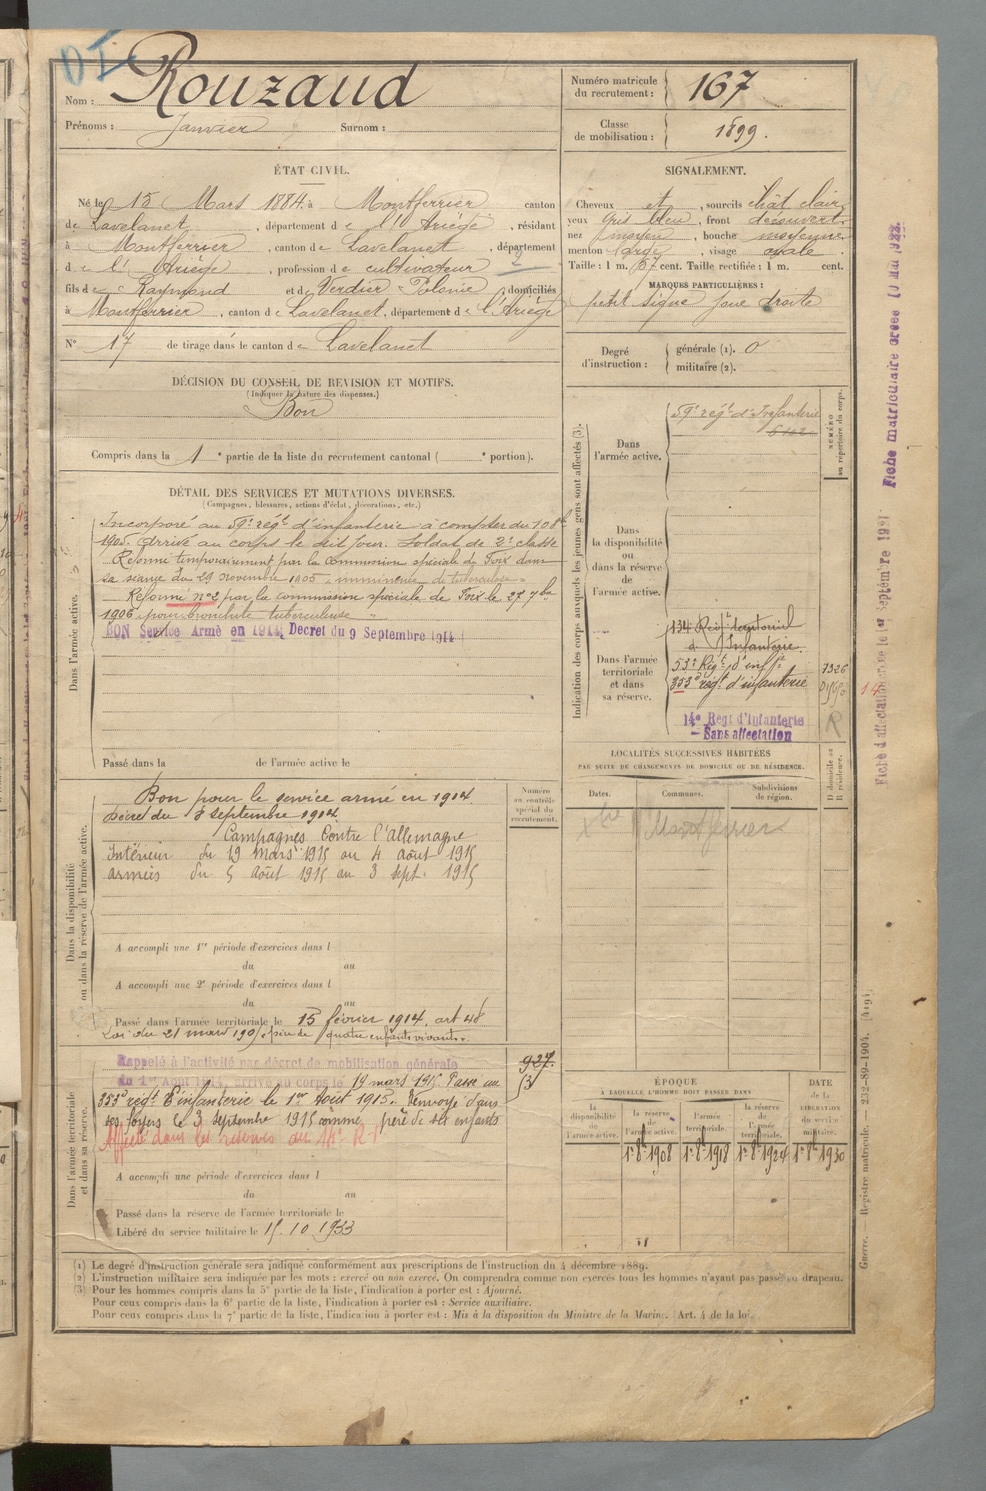 DI
Nom : Rouzaud
Prénoms : Janvier Surnom :
Numéro matricule du recrutement : 167
Classe de mobilisation : 1899.
ÉTAT CIVIL.
Né le 15 Mars 1884 à Montferrier canton
de Lavelanet, département de l'Ariège, résidant
à Montferrier, canton de Lavelanet, département
de l'Ariège, profession de cultivateur
fils de Raymond et de Verdier Polonie, domiciliés
à Montferrier, canton de Lavelanet, département de l'Ariège
N° 17 de tirage dans le canton de Lavelanet
SIGNALEMENT.
Cheveux et, sourcils chât clair,
yeux gris bleu, front découvert,
nez moyen, bouche moyenne
menton large, visage ovale.
Taille : 1 m. 67 cent. Taille rectifiée : 1 m. cent.
MARQUES PARTICULIÈRES :
petit signe joue droite
Degré d'instruction : générale (1). 0
militaire (2).
DÉCISION DU CONSEIL DE REVISION ET MOTIFS.
(Indiquer la nature des dispenses.)
Bon
Compris dans la 1e partie de la liste du recrutement cantonal ( e portion).
DÉTAIL DES SERVICES ET MUTATIONS DIVERSES.
(Campagnes, blessures, actions d'éclat, décorations, etc.)
Dans l'armée active.
Incorporé au 59e régt d'infanterie à compter du 10 8bre
1905. Arrivé au corps le dit jour. Soldat de 2e classe
Réformé temporairement par la commission spéciale de Foix dans
sa séance du 29 novembre 1905 "imminence de tuberculose"
Réformé n°2 par la commission spéciale de Foix le 27 7bre
1906 pour bronchite tuberculeuse
BON Service Armé en 1914, Decret du 9 Septembre 1914
Passé dans la de l'armée active le
Indication des corps auxquels les jeunes gens sont affectés (3).
NUMÉRO au répertoire du corps.
Dans l'armée active.
59e régt d'Infanterie
Dans la disponibilité ou dans la réserve de l'armée active.
Dans l'armée territoriale et dans sa réserve.
134 Régt territorial
d'Infanterie.
53e Régt d'inftie
7326
353e régt d'infanterie
14e Regt d'Infanterie
— Sans affectation
R
Dans la disponibilité ou dans la réserve de l'armée active.
Numéro au contrôle spécial du recrutement.
Bon pour le service armé en 1914
Décret du 9 septembre 1914
Campagnes Contre l'Allemagne
Intérieur du 19 mars 1915 au 4 août 1915
armées du 5 août 1915 au 3 sept. 1915
A accompli une 1re période d'exercices dans l
du au
A accompli une 2e période d'exercices dans l
du au
Passé dans l'armée territoriale le 15 février 1914, art 48
Loi du 21 mars 1905, père de quatre enfants vivants.
LOCALITÉS SUCCESSIVES HABITÉES
PAR SUITE DE CHANGEMENTS DE DOMICILE OU DE RÉSIDENCE.
Dates. Communes. Subdivisions de région. D domicile ou R résidence.
Montferrier
Dans l'armée territoriale et dans sa réserve.
Rappelé à l'activité par décret de mobilisation générale
du 1er Aout 1914, arrivé au corps le 19 mars 1915 Passé au
353e régt d'infanterie le 1er Août 1915. Renvoyé dans
ses foyers le 3 septembre 1915 comme père de six enfants
Affecté dans les réserves du 14e R.I
927.
A accompli une période d'exercices dans l
du au
Passé dans la réserve de l'armée territoriale le
Libéré du service militaire le 15. 10 1933
ÉPOQUE
À LAQUELLE L'HOMME DOIT PASSER DANS
DATE de la LIBÉRATION du service militaire.
la disponibilité de l'armée active. la réserve de l'armée active. l'armée territoriale. la réserve de l'armée territoriale.
1er 8bre 1908 1er 8bre 1918 1er 8bre 1924 1er 8bre 1930
(1) Le degré d'instruction générale sera indiqué conformément aux prescriptions de l'instruction du 4 décembre 1889.
(2) L'instruction militaire sera indiquée par les mots : exercé ou non exercé. On comprendra comme non exercés tous les hommes n'ayant pas passé au drapeau.
(3) Pour les hommes compris dans la 5e partie de la liste, l'indication à porter est : Ajourné.
Pour ceux compris dans la 6e partie de la liste, l'indication à porter est : Service auxiliaire.
Pour ceux compris dans la 7e partie de la liste, l'indication à porter est : Mis à la disposition du Ministre de la Marine. (Art. 4 de la loi.
Fiche matriculaire créée 10 Mai 1922.
Fiche d'affectation créée le 1er Septembre 1921.
14
Guerre. — Registre matricule. — 232-89-1904. [4194]